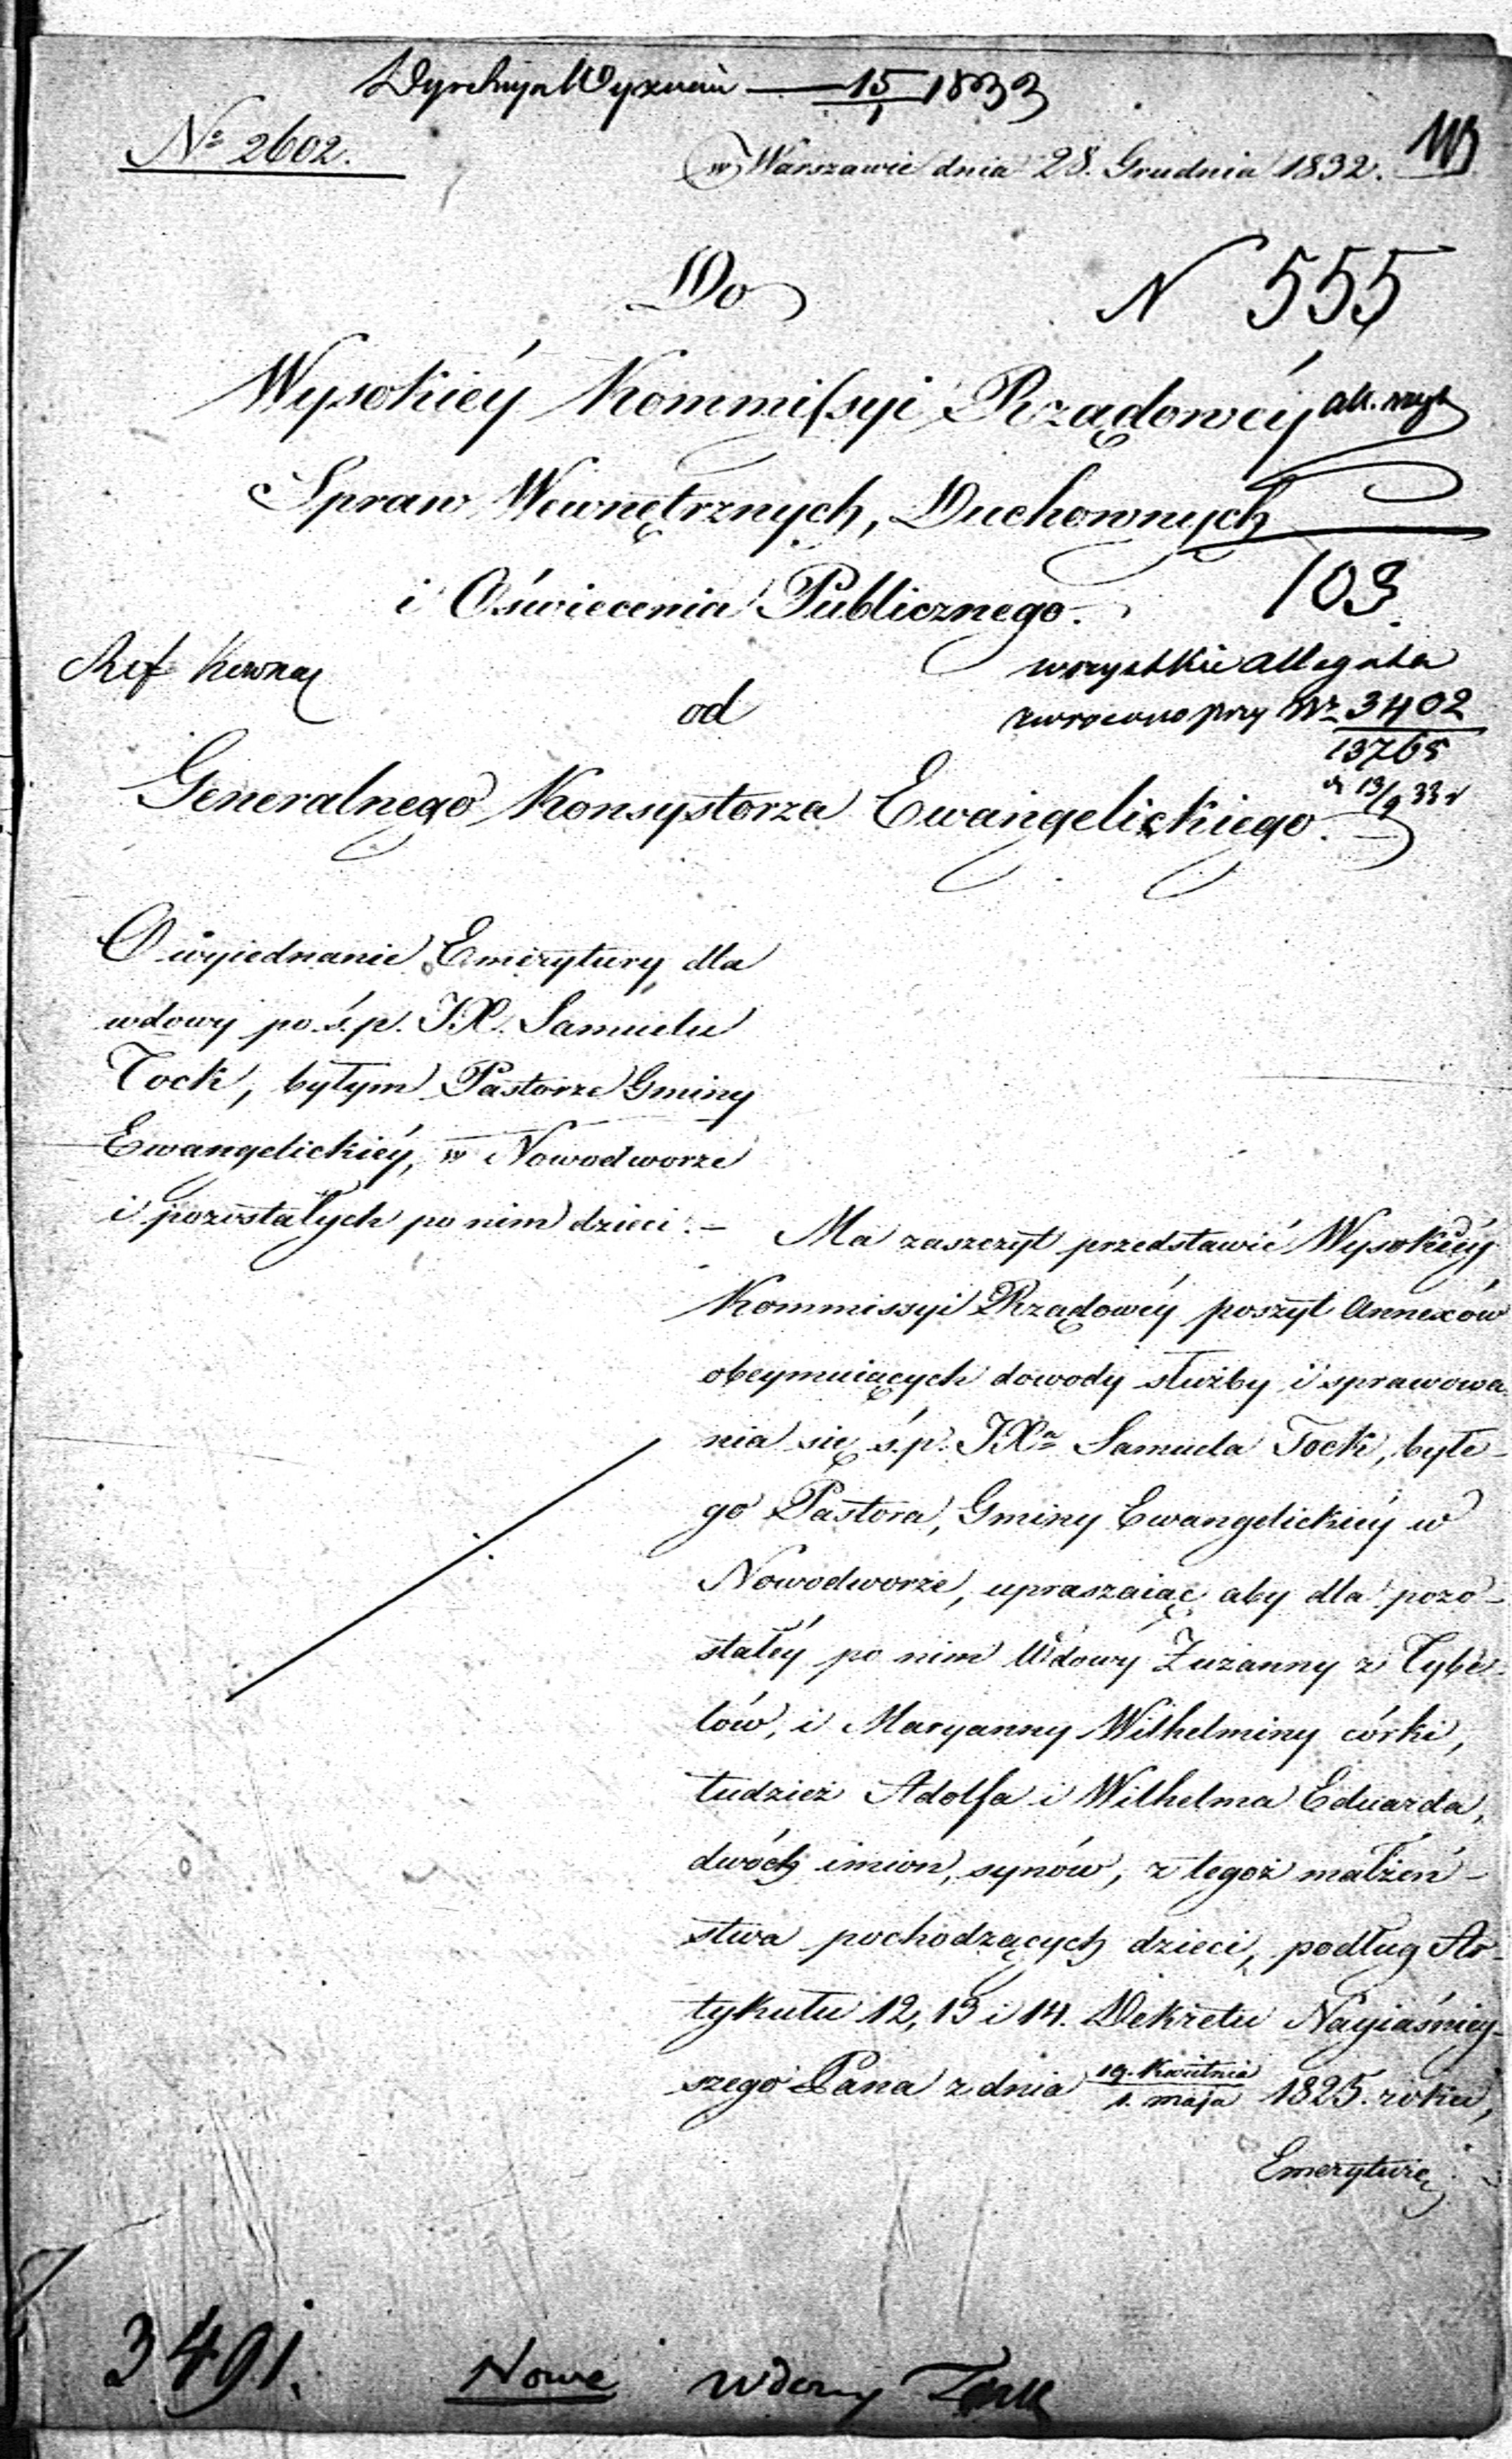 Dyrekcya Wyznań — 15/1 1833
№ 2602.
w Warszawie dnia 28. Grudnia 1832.
Do
N 555
Wysokiéy Kommissyi Rządowéy
Spraw Wewnętrznych, Duchownych
i Oświecenia Publicznego.
103.
wszystkie allegata
zwrocono przy Nr 3402
13765
d 13/9 33 r
Ref
od
Generalnego Konsystorza Ewangelickiego.
O wyiednanie Emerytury dla
wdowy po ś.p. JX. Samuelu
Tock, byłym Pastorze Gminy
Ewangelickiéy, w Nowodworze
i pozostałych po nim dzieci. –
Ma zaszczyt przedstawić Wysokiéy
Kommissyi Rządowéy poszyt Annexów
obeymuiących dowody służby i sprawowa
nia się ś.p. JXa Samuela Tock, byłe-
go Pastora, Gminy Ewangelickiéy w
Nowodworze, upraszaiąc aby dla pozo-
stałéy po nim Wdowy Zuzanny z Tybe-
lów, i Maryanny Wilhelminy córki,
tudzież Adolfa i Wilhelma Eduarda,
dwóch imion, synów, z tegoż małżeń-
stwa pochodzących dzieci, podług Ar-
tykułu 12, 13 i 14. Dekretu Nayiaśniey-
szego Pana z dnia 19. Kwietnia/1. maja 1825. roku,
Emeryturę
3491.
Nowe wdowy Tock